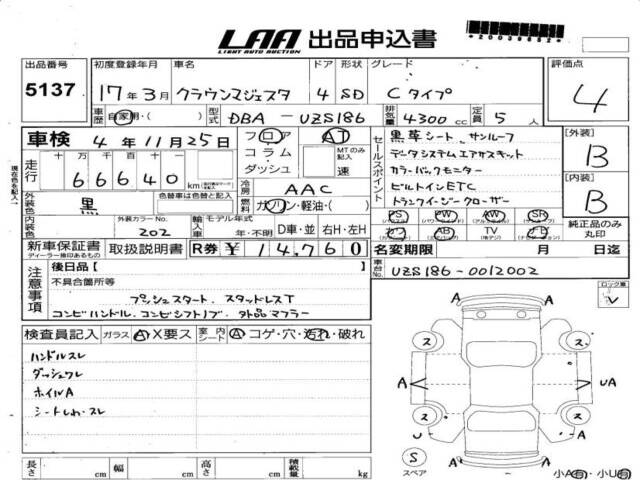 LAA 出品申込書
LIGHT AUTO AUCTION
*20039852*
出品番号 初度登録年月 車名 ドア 形状 グレード 評価点
5137 17年3月 クラウンマジェスタ 4 SD Cタイプ 4
車歴 自家用・( ) 型式 DBA-UZS186 排気量 4300 cc 定員 5 人
車検 4年11月25日 フロア AT 黒革シート サンルーフ [外装]
コラム MTのみ記入 データシステムエアサスキット B
走行 十 万 千 百 十 ダッシュ 速 セールスポイント カラーバックモニター
66640 km 冷房 AAC ビルトインETC [内装]
現在色を記入 外装色 黒 色替車は色替と記入 燃料 ガソリン・軽油・( ) トランクイージークローザー B
内装色 外装カラーNo. 202 輸入車 モデル年式 年・不明 D車・並 右H・左H PS PW AW SR
カワ AB TV ナビ 純正品のみ丸印
新車保証書 取扱説明書 R券 ¥14,760 名変期限 月 日迄
ディーラー捺印あるもの
車台No. UZS186-0012002
注意事項 後日品【 】 ロック車
不具合箇所等 レ
プッシュスタート、スタッドレスT
コンビハンドル、コンビシフトノブ、外品マフラー
検査員記入 ガラス A・X要ス 室内シート A コゲ・穴・汚れ・破れ
ハンドルスレ
ダッシュワレ
ホイルA
シートしわ・スレ
A
ス ス
A A UA
ス ス
S
スペア A
長さ cm 幅 cm 高さ cm 積載量 kg
小A有・小U有